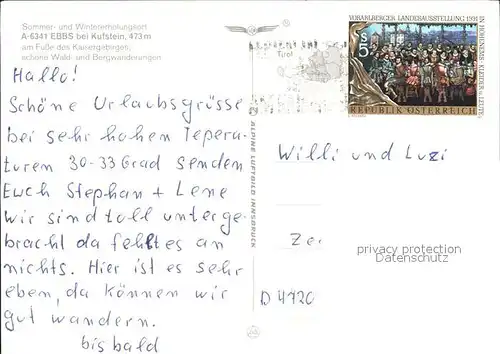 Sommer- und Wintererholungsort
A-6341 EBBS bei Kufstein, 473 m
am Fuße des Kaisergebirges,
schöne Wald- und Bergwanderungen
Hallo!
Schöne Urlaubsgrüsse
bei sehr hohen Tepera-
turen 30-33 Grad senden
Euch Stephan + Lene
Wir sind toll unterge-
bracht da fehltes an
nichts. Hier ist es sehr
eben, da können wir
gut wandern.
bis bald
ALPINE LUFTBILD INNSBRUCK
Tirol
VORARLBERGER LANDESAUSSTELLUNG 1991
IN HOHENEMS · KLEIDER u. LEUTE
S 5
REPUBLIK ÖSTERREICH
Willi und Luzi
Zei
D 4720
privacy protection
Datenschutz